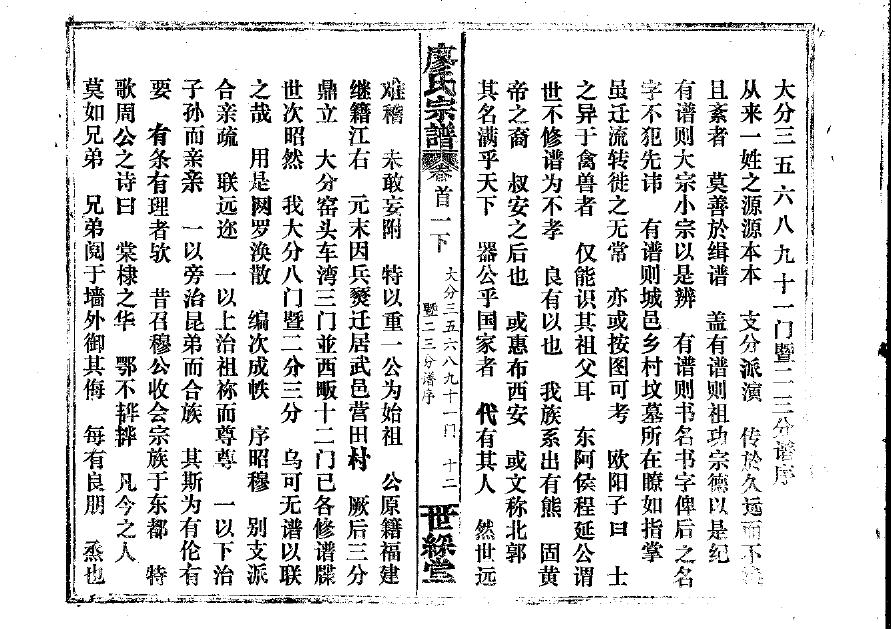 大分三五六八九十一门暨二三分谱序
从来一姓之源源本本 支分派演 传於久远而不
且紊者 莫善於缉谱 盖有谱则祖功宗德以是纪
有谱则大宗小宗以是辨 有谱则书名书字俾后之名
字不犯先讳 有谱则城邑乡村坟墓所在瞭如指掌
虽迁流转徙之无常 亦或按图可考 欧阳子曰 士
之异于禽兽者 仅能识其祖父耳 东阿侯程延公谓
世不修谱为不孝 良有以也 我族系出有熊 固黄
帝之裔 叔安之后也 或惠布西安 或文称北郭
其名满乎天下 器公乎国家者 代有其人 然世远
廖氏宗譜 卷首一下 大分三五六八九十一门 十二
暨二三分谱序
世綵堂
难稽 未敢妄附 特以重一公为始祖 公原籍福建
继籍江右 元末因兵燹迁居武邑营田村 厥后三分
鼎立 大分窑头车湾三门並西畈十二门已各修谱牒
世次昭然 我大分八门暨二分三分 乌可无谱以联
之哉 用是网罗涣散 编次成帙 序昭穆 别支派
合亲疏 联远迩 一以上治祖祢而尊尊 一以下治
子孙而亲亲 一以旁治昆弟而合族 其斯为有伦有
要 有条有理者欤 昔召穆公收会宗族于东都 特
歌周公之诗曰 棠棣之华 鄂不韡韡 凡今之人
莫如兄弟 兄弟阋于墙外御其侮 每有良朋 烝也